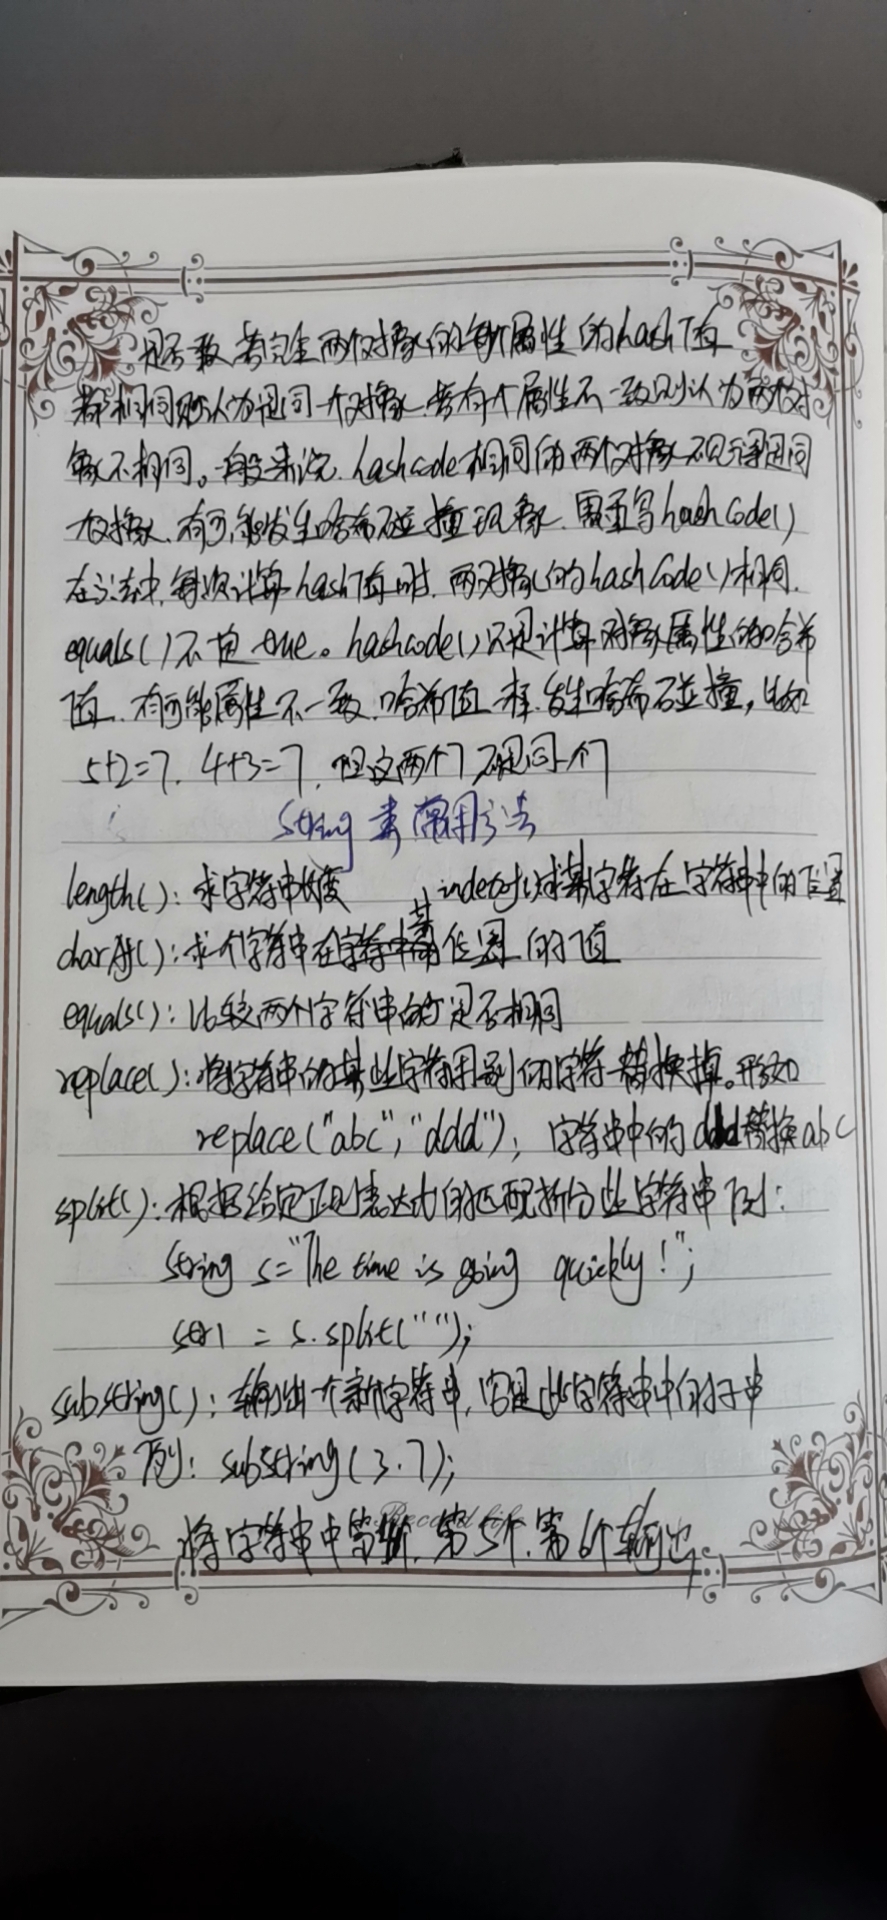 是否一致,若完全两个对象的每个属性的hash值
都相同则认为是同一个对象.若有个属性不一致则认为两个对
象不相同。一般来说.hashcode相同的两个对象不见得是同
一个对象.有可能发生哈希碰撞现象.需重写hashCode()
在方法中.每次计算hash值时.两对象的hashCode()相同.
equals()不一定true。hashcode()只是计算对象属性的哈希
值.有可能属性不一致.哈希值一样.发生哈希碰撞,比如
5+2=7.4+3=7.但这两个7不是同一个7
String类常用方法
length():求字符串长度 indexof()求某字符在字符串中的位置
charAt():求个字符串在字符中某位置的值
equals():比较两个字符串的是否相同
replace():将字符串的某些字符用别的字符替换掉。形如
replace("abc","ddd");字符串中的ddd替换abc
split():根据给定正则表达式的匹配拆分此字符串 例:
String s="The time is going quickly!";
str1 = s.split("");
substring():输出一个新字符串,它是此字符串中的子串
例:substring(3.7);
Record life
将字符串中第 第5个.第6个输出